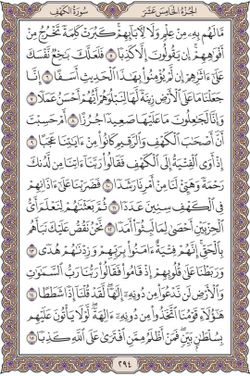 سُورَةُ الكَهْفِ الجُزْءُ الخَامِسَ عَشَرَ
مَّا لَهُم بِهِۦ مِنْ عِلْمٍ وَلَا لِءَابَآئِهِمْ كَبُرَتْ كَلِمَةً تَخْرُجُ مِنْ
أَفْوَٰهِهِمْ إِن يَقُولُونَ إِلَّا كَذِبًا ٥ فَلَعَلَّكَ بَٰخِعٌ نَّفْسَكَ
عَلَىٰٓ ءَاثَٰرِهِمْ إِن لَّمْ يُؤْمِنُوا۟ بِهَٰذَا ٱلْحَدِيثِ أَسَفًا ٦ إِنَّا
جَعَلْنَا مَا عَلَى ٱلْأَرْضِ زِينَةً لَّهَا لِنَبْلُوَهُمْ أَيُّهُمْ أَحْسَنُ عَمَلًا
٧ وَإِنَّا لَجَٰعِلُونَ مَا عَلَيْهَا صَعِيدًا جُرُزًا ٨ أَمْ حَسِبْتَ
أَنَّ أَصْحَٰبَ ٱلْكَهْفِ وَٱلرَّقِيمِ كَانُوا۟ مِنْ ءَايَٰتِنَا عَجَبًا ٩
إِذْ أَوَى ٱلْفِتْيَةُ إِلَى ٱلْكَهْفِ فَقَالُوا۟ رَبَّنَآ ءَاتِنَا مِن لَّدُنكَ
رَحْمَةً وَهَيِّئْ لَنَا مِنْ أَمْرِنَا رَشَدًا ١٠ فَضَرَبْنَا عَلَىٰٓ ءَاذَانِهِمْ
فِى ٱلْكَهْفِ سِنِينَ عَدَدًا ١١ ثُمَّ بَعَثْنَٰهُمْ لِنَعْلَمَ أَىُّ
ٱلْحِزْبَيْنِ أَحْصَىٰ لِمَا لَبِثُوٓا۟ أَمَدًا ١٢ نَّحْنُ نَقُصُّ عَلَيْكَ نَبَأَهُم
بِٱلْحَقِّ إِنَّهُمْ فِتْيَةٌ ءَامَنُوا۟ بِرَبِّهِمْ وَزِدْنَٰهُمْ هُدًى ١٣
وَرَبَطْنَا عَلَىٰ قُلُوبِهِمْ إِذْ قَامُوا۟ فَقَالُوا۟ رَبُّنَا رَبُّ ٱلسَّمَٰوَٰتِ
وَٱلْأَرْضِ لَن نَّدْعُوَا۟ مِن دُونِهِۦٓ إِلَٰهًا لَّقَدْ قُلْنَآ إِذًا شَطَطًا ١٤
هَٰٓؤُلَآءِ قَوْمُنَا ٱتَّخَذُوا۟ مِن دُونِهِۦٓ ءَالِهَةً لَّوْلَا يَأْتُونَ عَلَيْهِم
بِسُلْطَٰنٍۭ بَيِّنٍ فَمَنْ أَظْلَمُ مِمَّنِ ٱفْتَرَىٰ عَلَى ٱللَّهِ كَذِبًا ١٥
٢٩٤